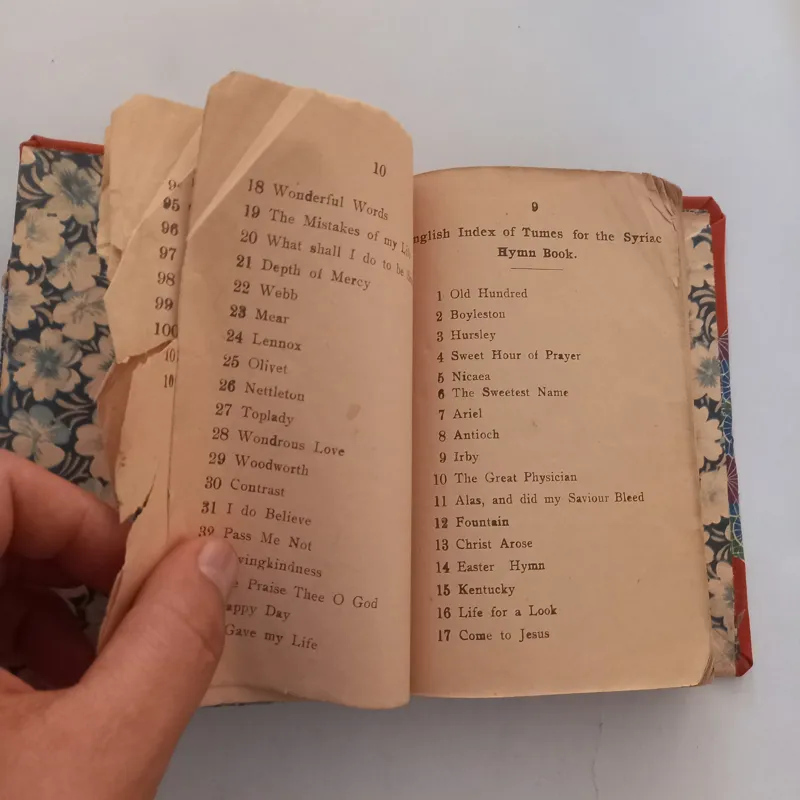 9
nglish Index of Tumes for the Syriac
Hymn Book.
1 Old Hundred
2 Boyleston
3 Hursley
4 Sweet Hour of Prayer
5 Nicaea
6 The Sweetest Name
7 Ariel
8 Antioch
9 Irby
10 The Great Physician
11 Alas, and did my Saviour Bleed
12 Fountain
13 Christ Arose
14 Easter Hymn
15 Kentucky
16 Life for a Look
17 Come to Jesus
10
18 Wonderful Words
19 The Mistakes of my
20 What shall I do to be
21 Depth of Mercy
22 Webb
23 Mear
24 Lennox
25 Olivet
26 Nettleton
27 Toplady
28 Wondrous Love
29 Woodworth
30 Contrast
31 I do Believe
32 Pass Me Not
vingkindness
Praise Thee O God
appy Day
Gave my Life
95
96
97
98
99
100